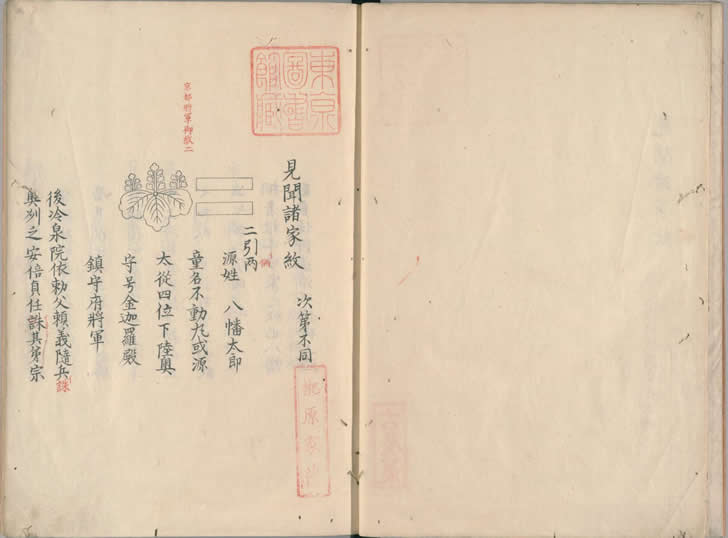 東京
圖書
館藏
見聞諸家紋 次第不同
二引両
源姓 八幡太郎
童名不動丸或源
太從四位下陸奥
守号金迦羅殿
鎮守府將軍
後冷泉院依勅父頼義隨兵
誅
奥刕之安倍貞任誅其弟宗